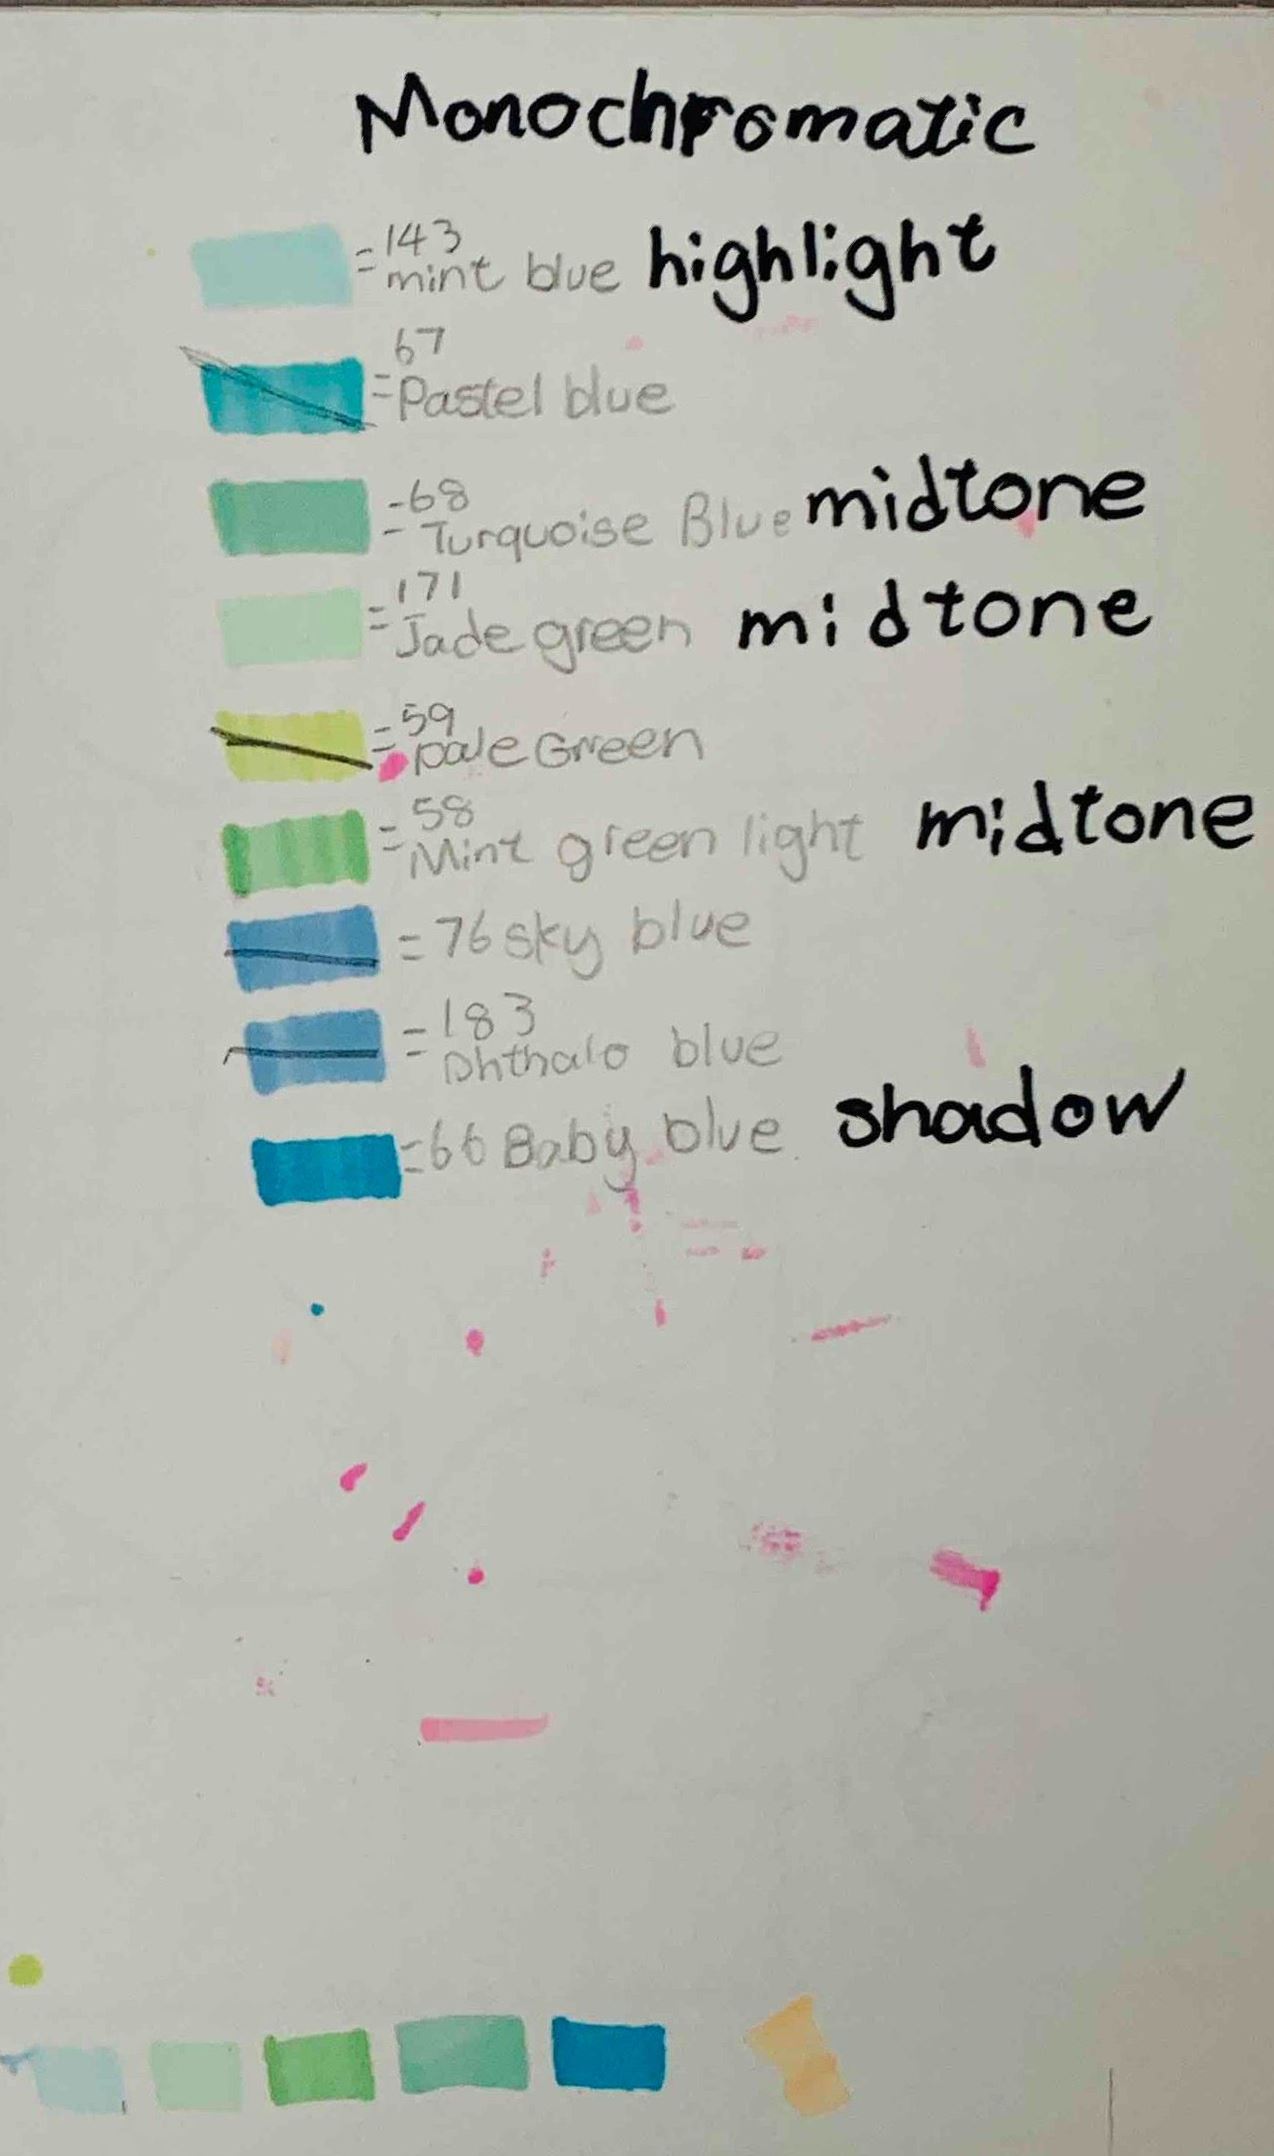 Monochromatic
=143
mint blue highlight
67
=Pastel blue
-68
- Turquoise Blue midtone
=171
Jade green midtone
=59
pale Green
=58
Mint green light midtone
=76 sky blue
=183
phthalo blue
=66 Baby blue shadow